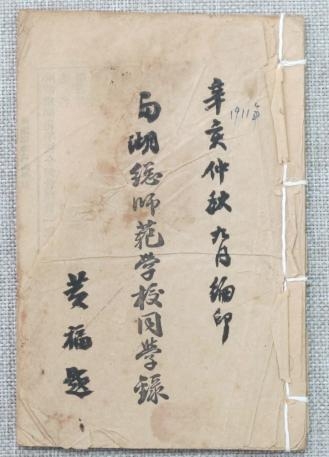 辛亥仲秋九月编印
1911年
两湖总师范学校同学录
黄福题